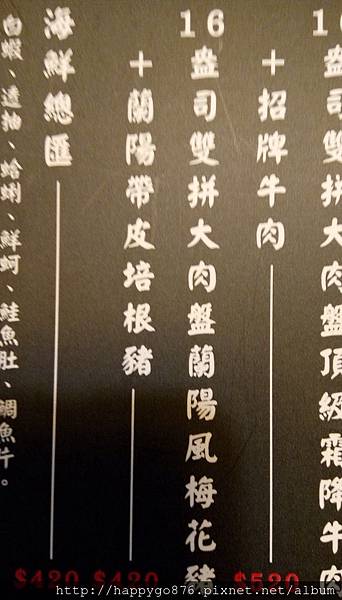 16盎司雙拼大肉盤頂級霜降牛肉
+招牌牛肉
$520
16盎司雙拼大肉盤蘭陽風梅花豬
+蘭陽帶皮培根豬
$420
海鮮總匯
$420
白蝦、透抽、蛤蜊、鮮蚵、鮭魚肚、鯛魚片。
http://happygo876.pixnet.net/album